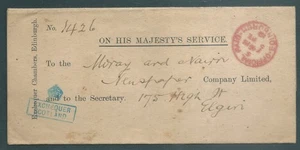 Exchequer Chambers, Edinburgh.
No. 1426
ON HIS MAJESTY'S SERVICE.
To the Moray and Nairn
Newspaper Company Limited,
and to the Secretary. 175 High St
Elgin
EXCHEQUER
SCOTLAND